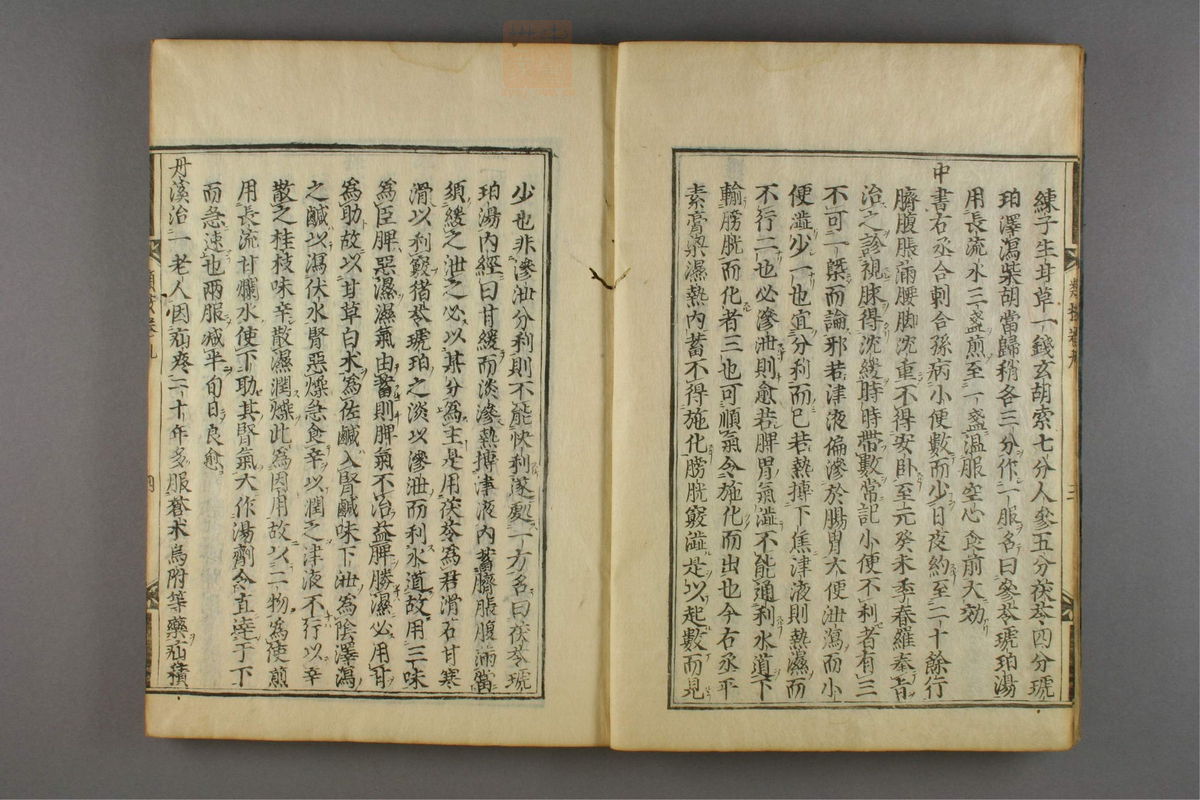 練子生甘草一錢玄胡索七分人參五分茯苓四分琥
珀澤瀉柴胡當歸稍各三分作一服名曰參苓琥珀湯
用長流水三盞煎至一盞温服空心食前大効
中書右丞合剌合孫病小便數而少日夜約至二十餘行
臍腹脹滿腰脚沈重不得安卧至元癸未季春羅奉旨
治之診視脉得沈緩時時帶數常記小便不利者有三
不可一槩而論邪若津液偏滲於腸胃大便泄瀉而小
便澁少一也宜分利而已若熱搏下焦津液則熱濕而
不行二也必滲泄則愈若脾胃氣澁不能通利水道下
輸膀胱而化者三也可順氣令施化而出也今右丞平
素膏粱濕熱內蓄不得施化膀胱竅澁是以起數而見
三
少也非滲泄分利則不能快利遂處一方名曰茯苓琥
珀湯內經曰甘緩而淡滲熱搏津液內蓄臍脹腹滿當
須緩之泄之必以甚分爲主是用茯苓爲君滑石甘寒
滑以利竅猪苓琥珀之淡以滲泄而利水道故用三味
爲臣脾惡濕濕氣由蓄則脾氣不治益脾勝濕必用甘
爲助故以甘草白朮爲佐鹹入腎鹹味下泄爲陰澤瀉
之鹹以瀉伏水腎惡燥急食辛以潤之津液不行以辛
散之桂枝味辛散濕潤燥此爲因用故以二物爲使煎
用長流甘爛水使下助其腎氣大作湯劑令直達于下
而急速也兩服减半旬日良愈
丹溪治一老人因疝疼二十年多服蒼朮烏附等藥疝積
四